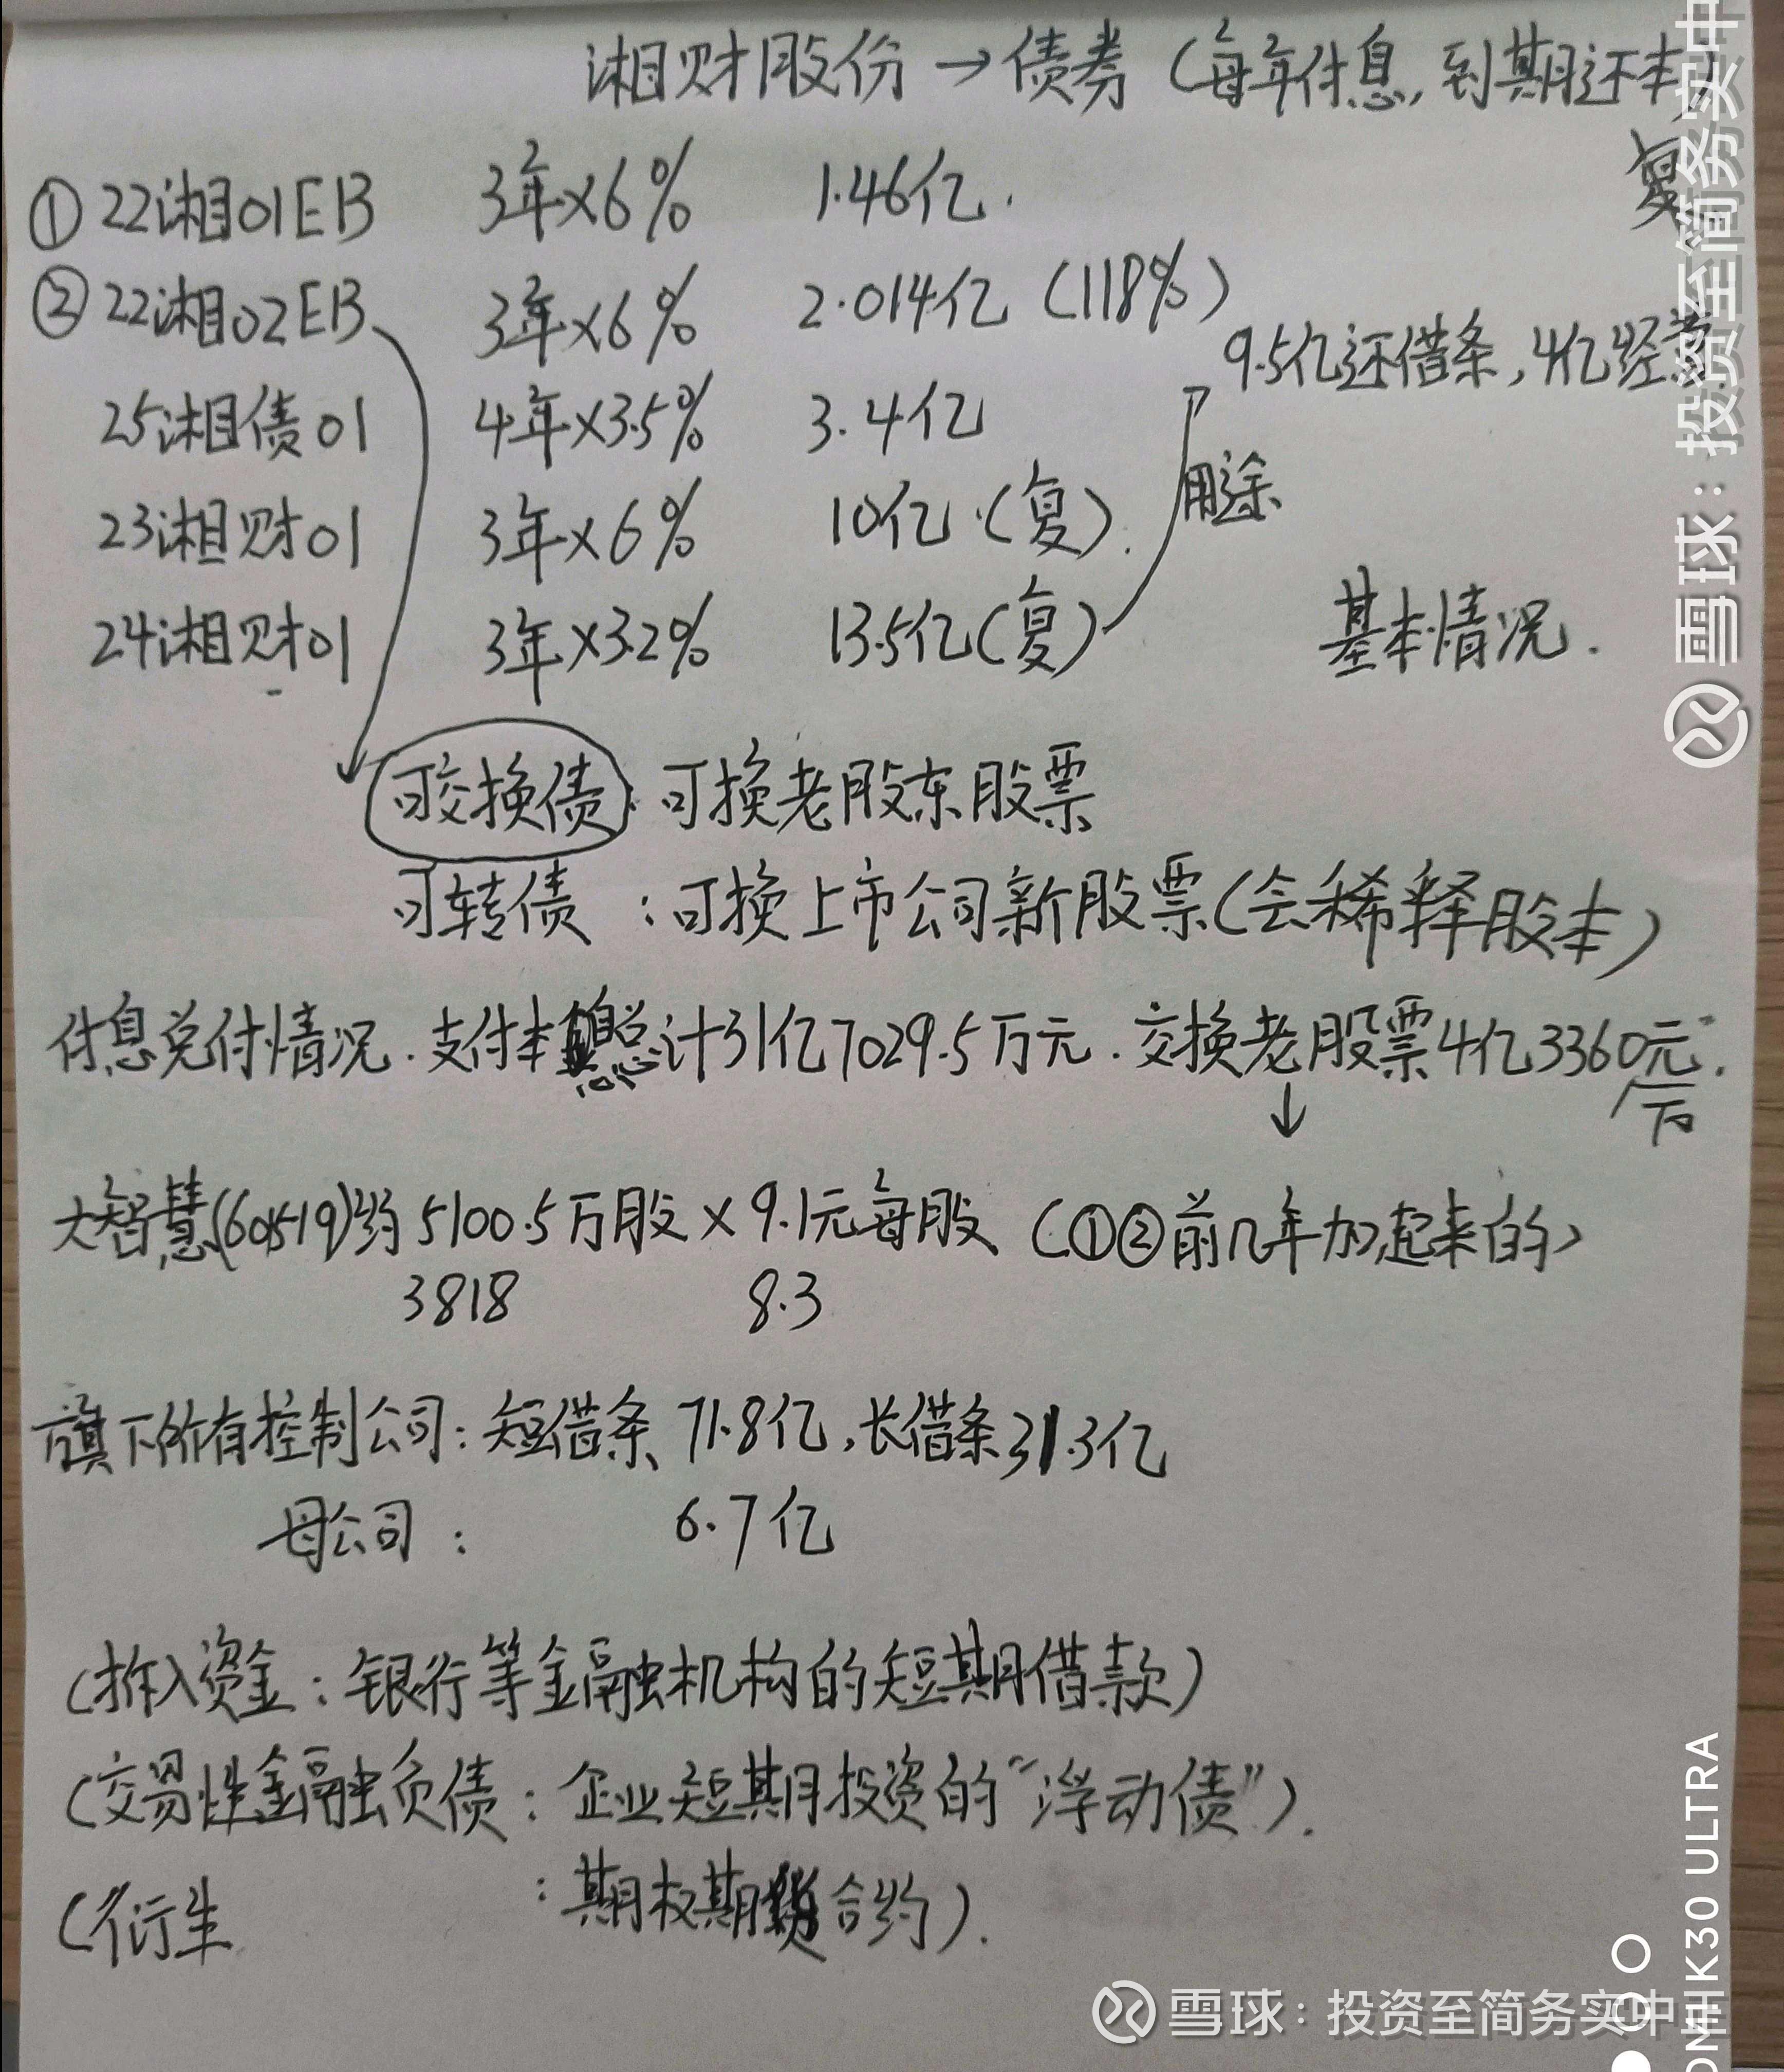 湘财股份→债券(每年付息,到期还本)
复
①22湘01EB 3年×6% 1.46亿.
②22湘02EB 3年×6% 2.014亿(118%)
9.5亿还借条,4亿经营
25湘债01 4年×3.5% 3.4亿
用途
23湘财01 3年×6% 10亿(复).
24湘财01 3年×3.2% 13.5亿(复)
基本情况.
可交换债:可换老股东股票
可转债:可换上市公司新股票(会稀释股本)
付息兑付情况.支付本息总计31亿7029.5万元.交换老股票4亿3360万元.
↓
大智慧(601519)约5100.5万股×9.1元每股(①②前几年加起来的)
3818 8.3
旗下所有控制公司:短借条71.8亿,长借条31.3亿
母公司: 6.7亿
(拆入资金:银行等金融机构的短期借款)
(交易性金融负债:企业短期投资的“浮动债”).
(衍生 :期权期货合约).
雪球:投资至简务实中
雪球:投资至简务实中
OMI K30 ULTRA